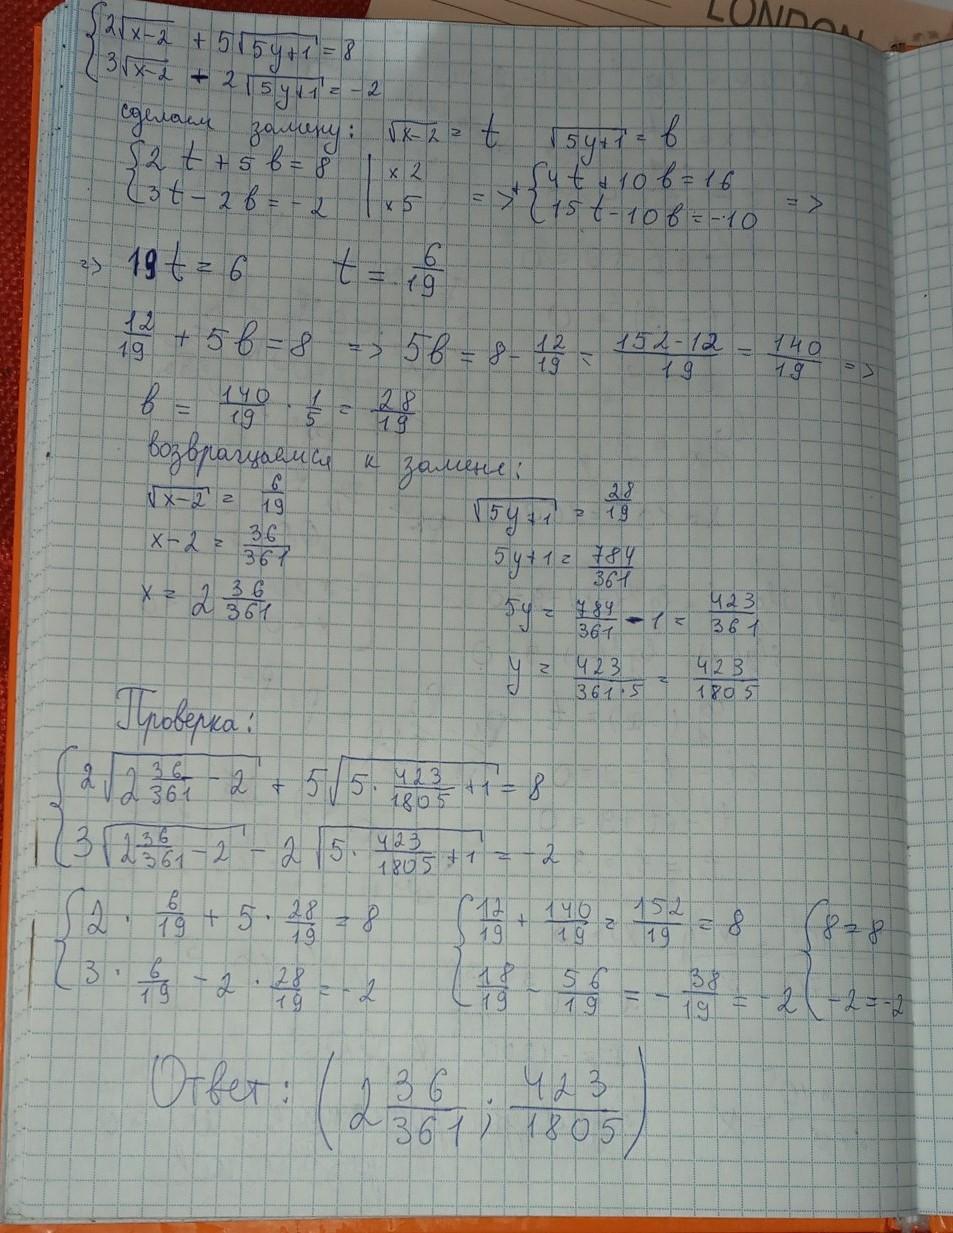 LONDON
{2√(x-2) + 5√(5y+1) = 8
{3√(x-2) - 2√(5y+1) = -2
сделаем замену: √(x-2) = t √(5y+1) = b
{2t + 5b = 8 | ×2 => + {4t + 10b = 16 =>
{3t - 2b = -2 | ×5 {15t - 10b = -10
=> 19t = 6 t = 6/19
12/19 + 5b = 8 => 5b = 8 - 12/19 = (152-12)/19 = 140/19 =>
b = 140/19 · 1/5 = 28/19
возвращаемся к замене:
√(x-2) = 6/19 √(5y+1) = 28/19
x-2 = 36/361 5y+1 = 784/361
x = 2 36/361 5y = 784/361 - 1 = 423/361
y = 423/(361·5) = 423/1805
Проверка:
{2√(2 36/361 - 2) + 5√(5 · 423/1805 + 1) = 8
{3√(2 36/361 - 2) - 2√(5 · 423/1805 + 1) = -2
{2 · 6/19 + 5 · 28/19 = 8 {12/19 + 140/19 = 152/19 = 8 {8 = 8
{3 · 6/19 - 2 · 28/19 = -2 {18/19 - 56/19 = -38/19 = -2 {-2 = -2
Ответ: (2 36/361 ; 423/1805)